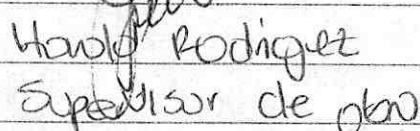 Harold Rodriguez
Supervisor de obra